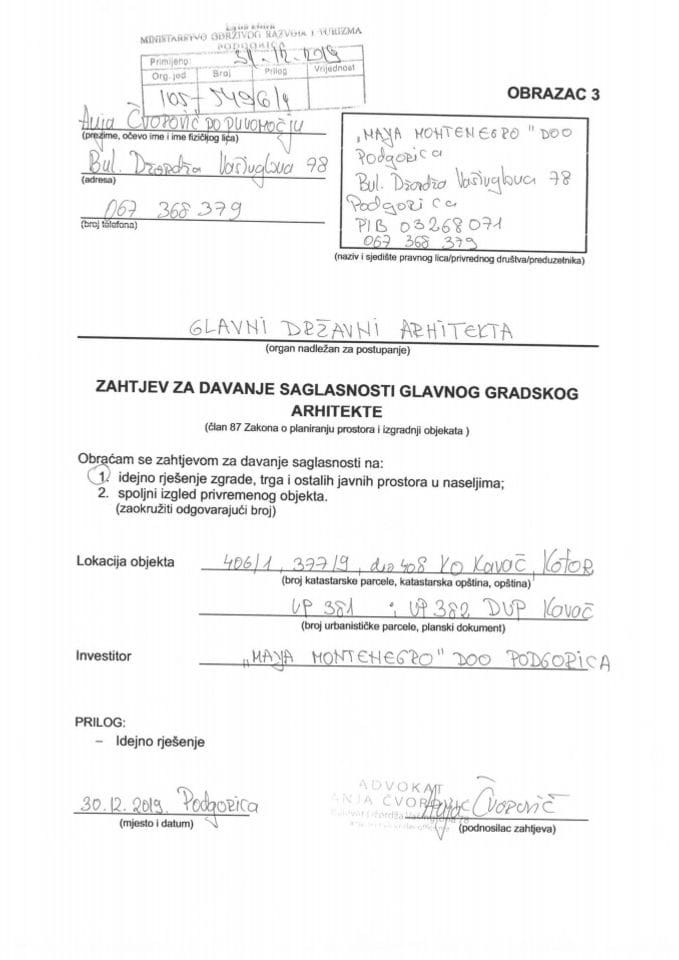 Crna Gora
MINISTARSTVO ODRŽIVOG RAZVOJA I TURIZMA
PODGORICA
Primljeno: 31-12-2019
Org. jed Broj Prilog Vrijednost
105- 5496/1
OBRAZAC 3
Anja Čvorović PO PUNOMOĆJU
(prezime, očevo ime i ime fizičkog lica)
Bul. Džordža Vašingtona 78
(adresa)
067 368 379
(broj telefona)
„MAYA MONTENEGRO" DOO
Podgorica
Bul. Džordža Vašingtona 78
Podgorica
PIB 03268071
067 368 379
(naziv i sjedište pravnog lica/privrednog društva/preduzetnika)
GLAVNI DRŽAVNI ARHITEKTA
(organ nadležan za postupanje)
ZAHTJEV ZA DAVANJE SAGLASNOSTI GLAVNOG GRADSKOG
ARHITEKTE
(član 87 Zakona o planiranju prostora i izgradnji objekata )
Obraćam se zahtjevom za davanje saglasnosti na:
1. idejno rješenje zgrade, trga i ostalih javnih prostora u naseljima;
2. spoljni izgled privremenog objekta.
(zaokružiti odgovarajući broj)
Lokacija objekta 406/1, 377/9, dio 408 KO Kavač, Kotor
(broj katastarske parcele, katastarska opština, opština)
UP 381 i UP 382 DUP Kavač
(broj urbanističke parcele, planski dokument)
Investitor „MAYA MONTENEGRO" DOO PODGORICA
PRILOG:
– Idejno rješenje
30.12.2019. Podgorica
(mjesto i datum)
ADVOKAT
ANJA ČVOROVIĆ
Čvorović
(podnosilac zahtjeva)